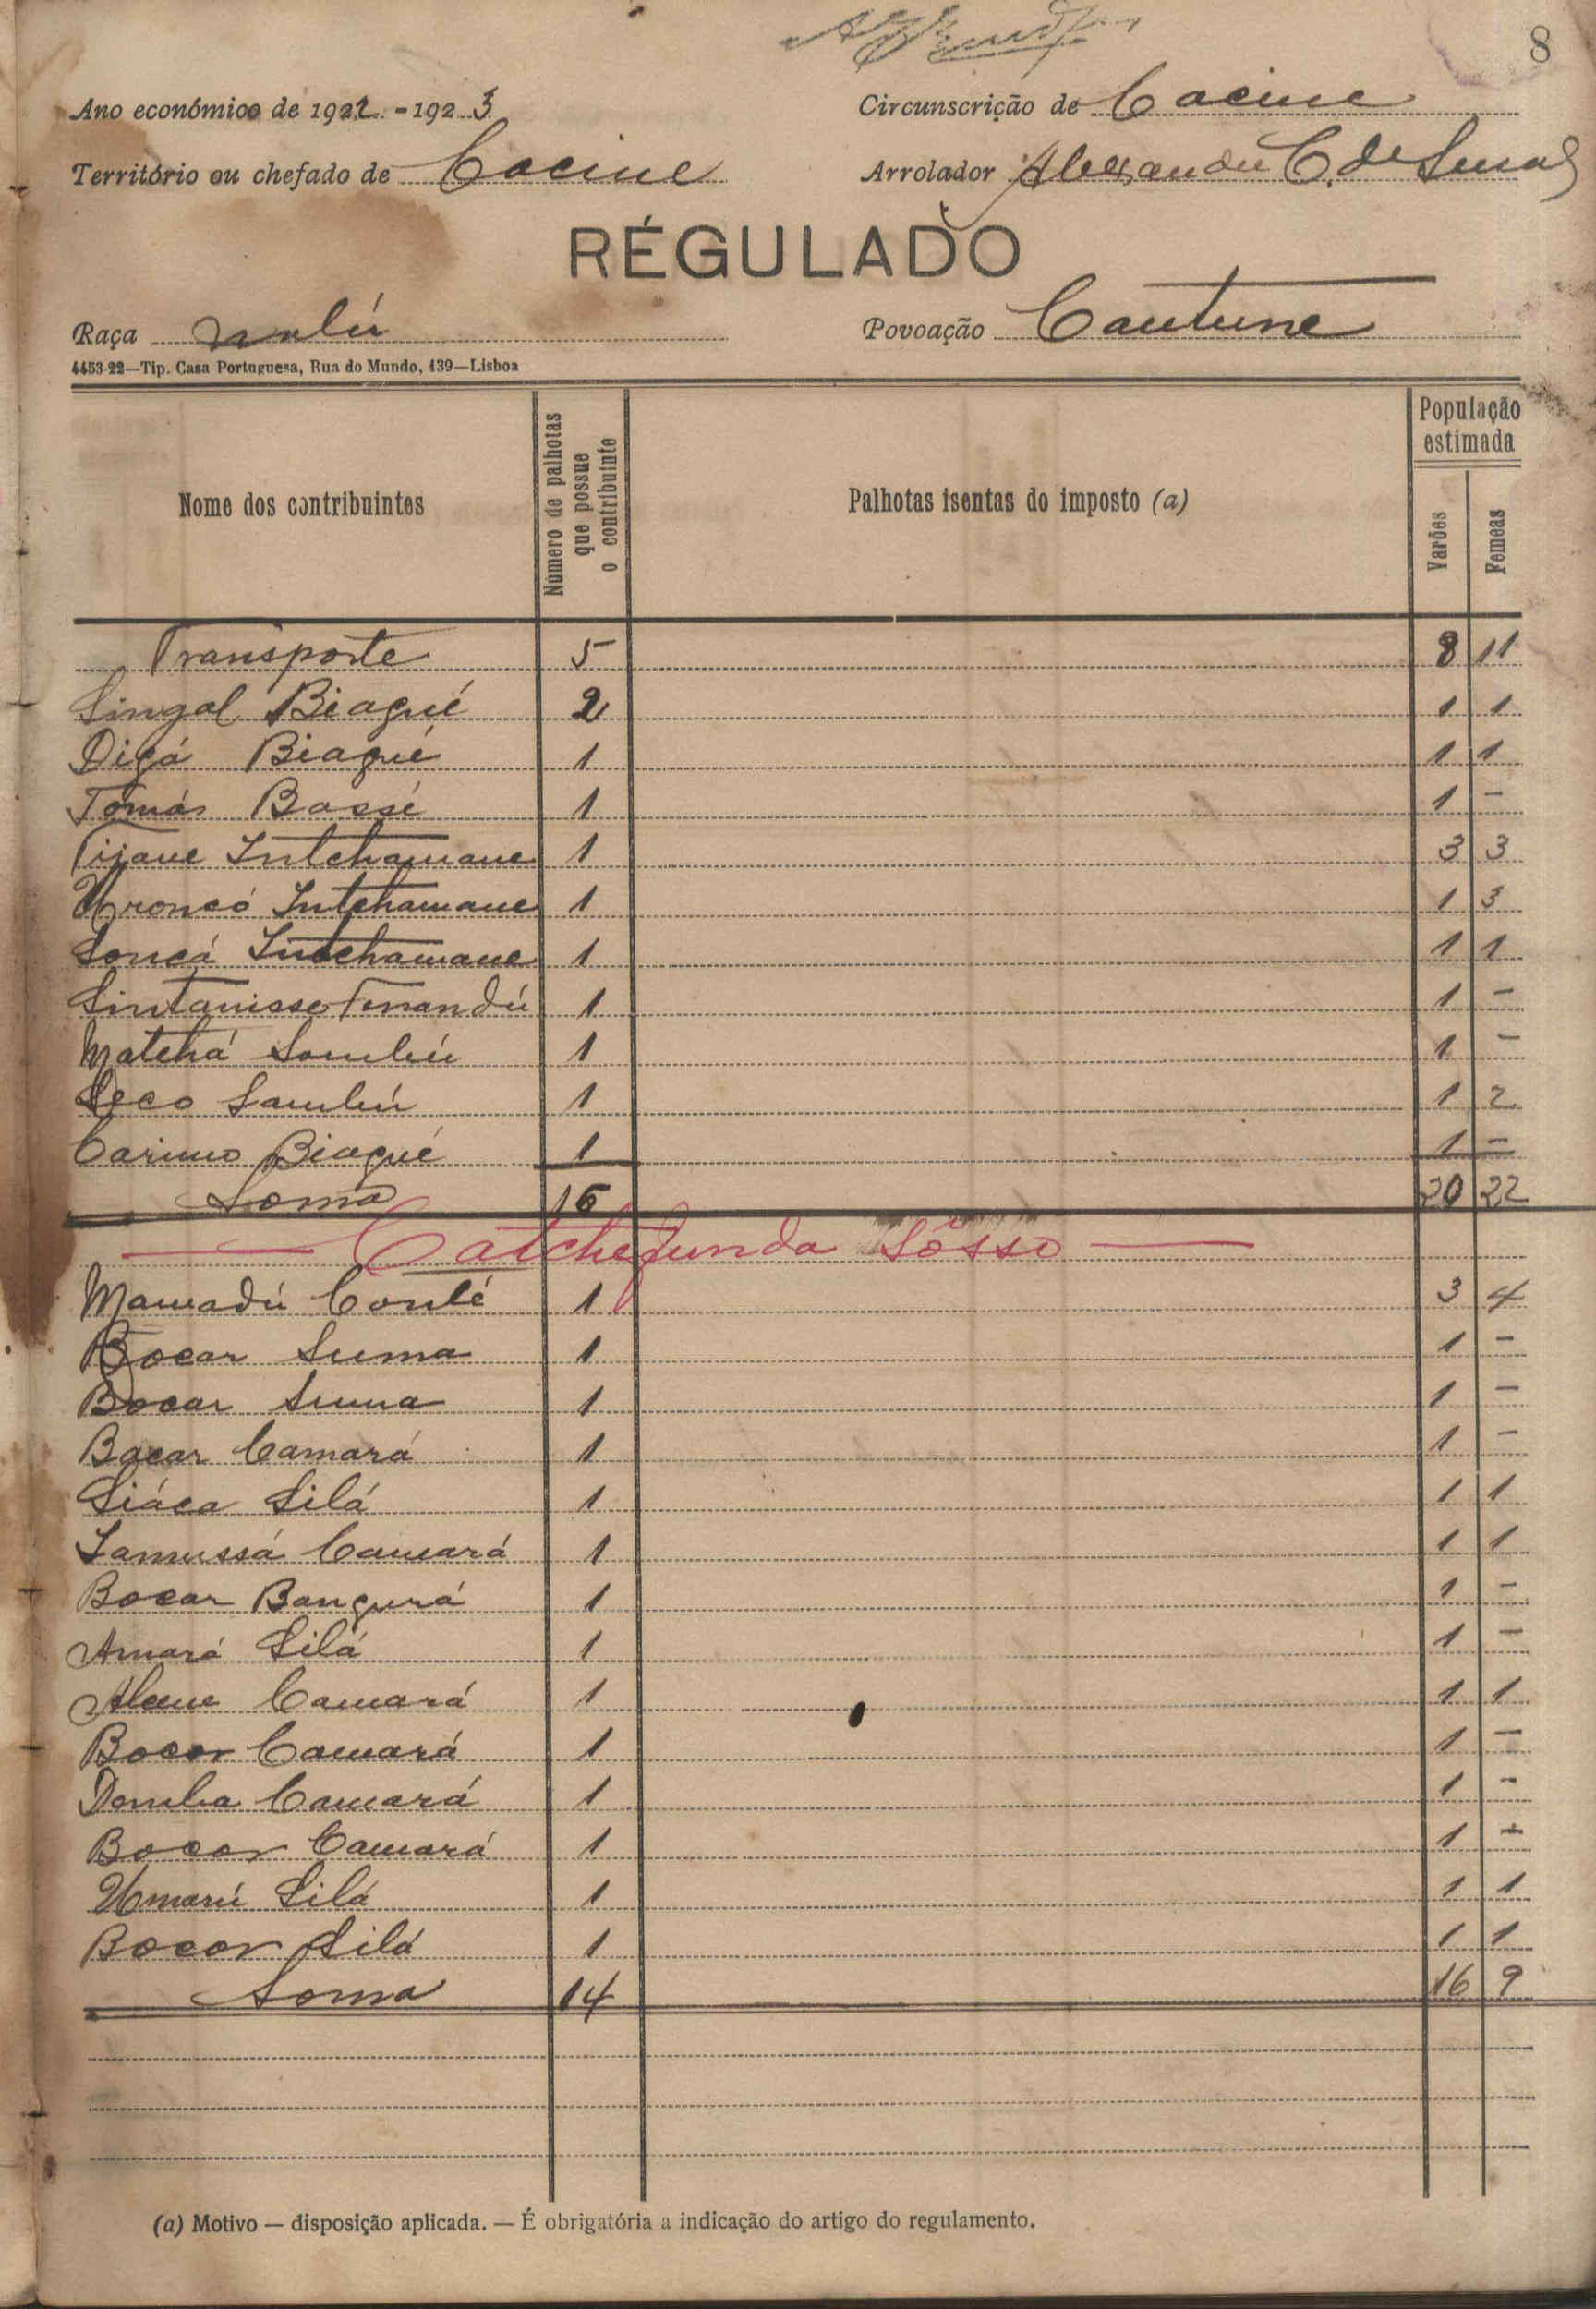 8
Ano económico de 1922-1923 Circunscrição de Cacine
Território ou chefado de Cacine Arrolador Alexandre C. de
RÉGULADO
Raça Nalú Povoação Cautune
4453-22—Tip. Casa Portuguesa, Rua do Mundo, 139—Lisboa
Nome dos contribuintes Número de palhotas que possue o contribuinte Palhotas isentas do imposto (a) População estimada Varões Femeas
Transporte 5 8 11
Singal Biagué 2 1 1
Digá Biagué 1 1 1
Tomás Bassé 1 1 -
Tijane Intchamane 1 3 3
Uroncó Intchamane 1 1 3
Soncá Intchamane 1 1 1
Sintanisse 1 1 -
Matchá Sambú 1 1 -
Seco Sambú 1 1 2
Carimo Biagué 1 1 -
Soma 16 20 22
Catchefunda Sôsso
Mamadú Conté 1 3 4
Bocar Suma 1 1 -
Bocar Suma 1 1 -
Bacar Camará 1 1 -
Siáca Silá 1 1 1
Lamussá Camará 1 1 1
Bocar Bangurá 1 1 -
Amará Silá 1 1 -
Alame Camará 1 1 1
Bocar Camará 1 1 -
Demba Camará 1 1 -
Bocar Camará 1 1 -
Umarú Silá 1 1 1
Bocar Silá 1 1 1
Soma 14 16 9
(a) Motivo — disposição aplicada. — É obrigatória a indicação do artigo do regulamento.